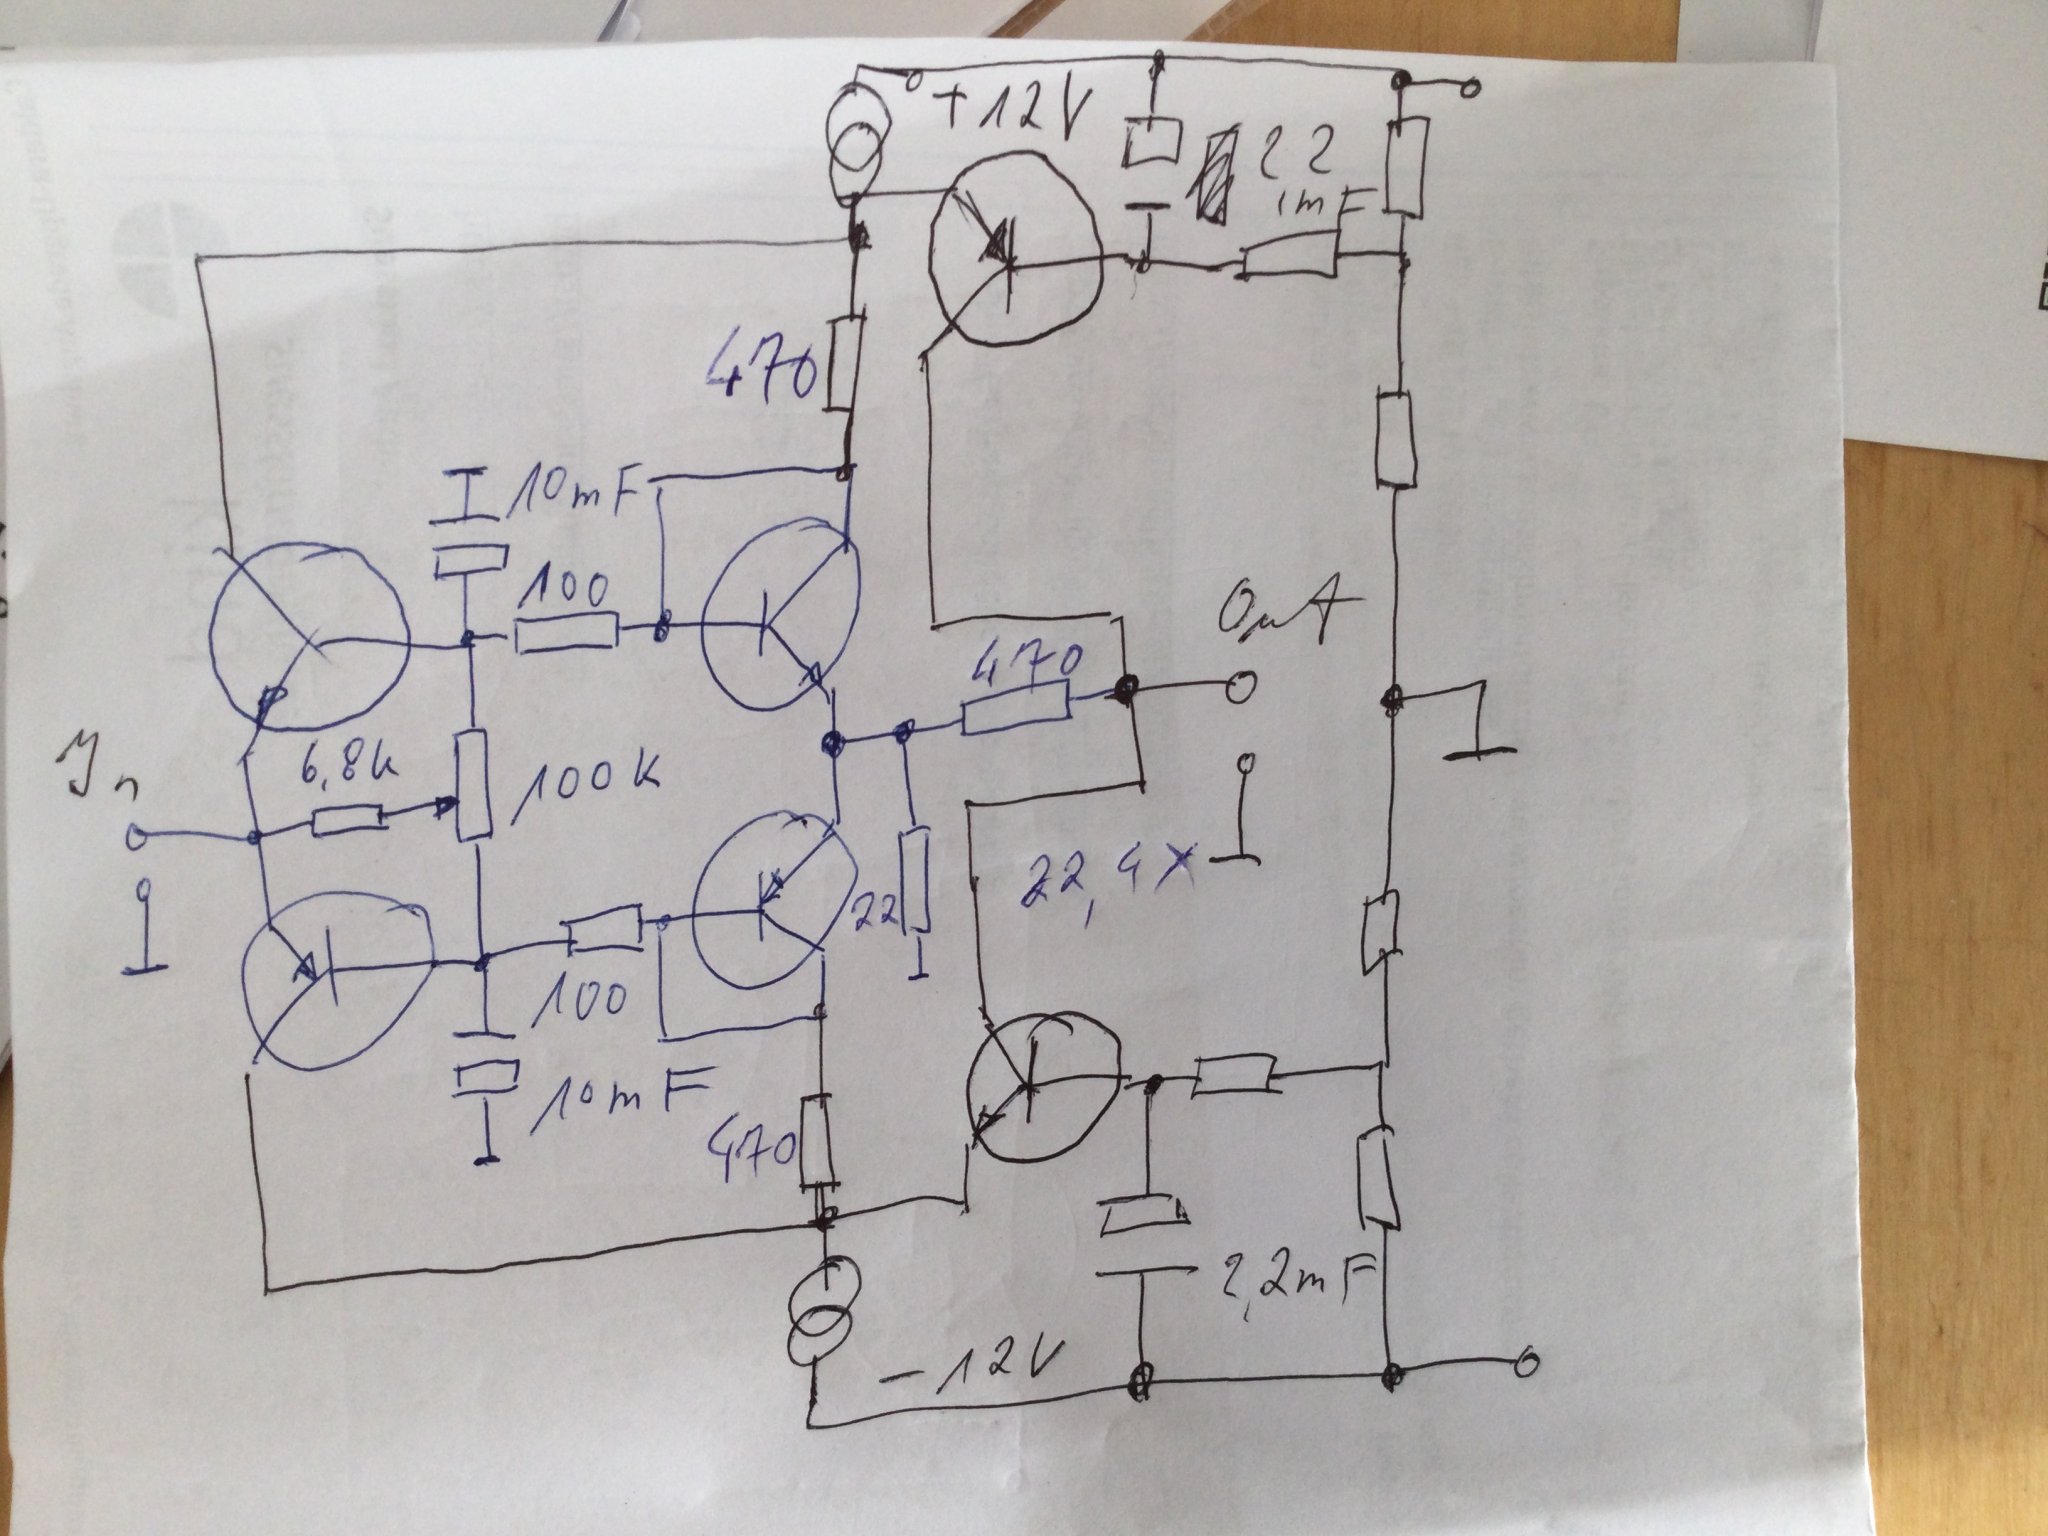 +12V
22
1mF
470
10mF
100
Out
470
In
6,8k
100k
22
22,4X
100
10mF
470
2,2mF
-12V